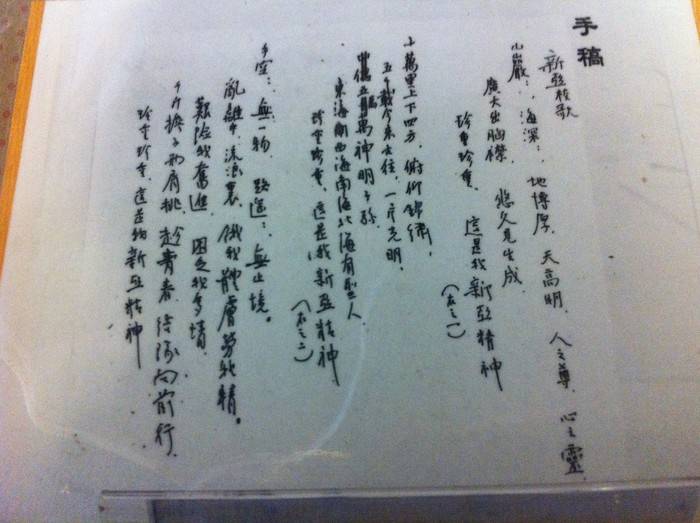 手稿
新亞校歌
山巖:, 海深:, 地博厚, 天高明, 人之尊, 心之靈,
廣大出胸襟, 悠久見生成.
珍重珍重, 這是我新亞精神 (右之一)
十萬里上下四方, 俯仰錦繡,
五千載今來古往, 一片光明,
五萬萬神明子孫.
東海西海南海北海有聖人
珍重珍重, 這是我新亞精神. (右之二)
手空:, 無一物, 路遙:, 無止境。
亂離中, 流浪裏, 餓我體膚勞我精。
艱險我奮進, 困乏我多情.
千斤擔子兩肩挑, 趁青春, 結隊向前行.
珍重珍重, 這是我新亞精神